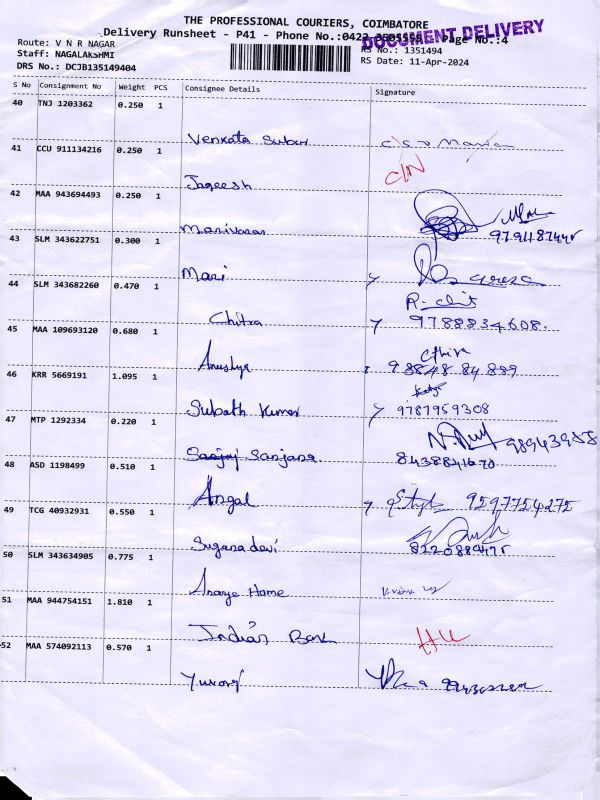 THE PROFESSIONAL COURIERS, COIMBATORE
Delivery Runsheet - P41 - Phone No.:0422 Page No.:4
DOCUMENT DELIVERY
Route: V N R NAGAR
RS No.: 1351494
Staff: NAGALAKSHMI
RS Date: 11-Apr-2024
DRS No.: DCJB135149404
S No Consignment No Weight PCS Consignee Details Signature
40 TNJ 1203362 0.250 1
Venkata Suburi
41 CCU 911134216 0.250 1
C/N
Jageesh
42 MAA 943694493 0.250 1
Manivasan
43 SLM 343622751 0.300 1
Mari
44 SLM 343682260 0.470 1
Chitra
9788834608.
45 MAA 109693120 0.680 1
Anushya
98848 84 889
46 KRR 5669191 1.095 1
Subath Kumar
9787959308
47 MTP 1292334 0.220 1
Saajaj Sanjana
8438841670
48 ASD 1198499 0.510 1
Angal
9597754275
49 TCG 40932931 0.550 1
Sugana devi
50 SLM 343634905 0.775 1
Ananya Home
51 MAA 944754151 1.810 1
Indian Bank
52 MAA 574092113 0.570 1
Yuvaraj